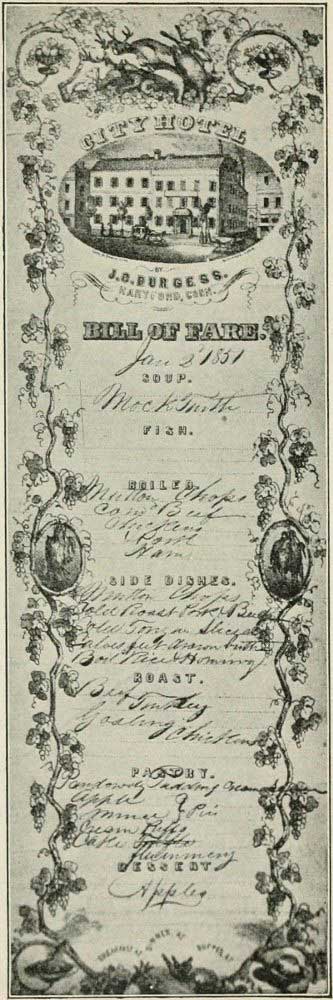 CITY HOTEL
BY
J.G. BURGESS.
HARTFORD, CONN.
BILL OF FARE.
Jan 2 1851
SOUP.
Mock Turtle
FISH.
BOILED
Mutton Chops
Corn'd Beef
Chickens
Pork
Ham
SIDE DISHES.
Mutton Chops
Cold Roast Pork & Beef
Cold Tongue Sliced
Calves feet
Boil Rice & Hominy
ROAST.
Beef Turkey
Gosling
Chicken
PASTRY.
Pandowdy Pudding
Apple
Mince } Pies
Cream
Cake
DESSERT
Apples
BREAKFAST AT DINNER, AT SUPPER, AT